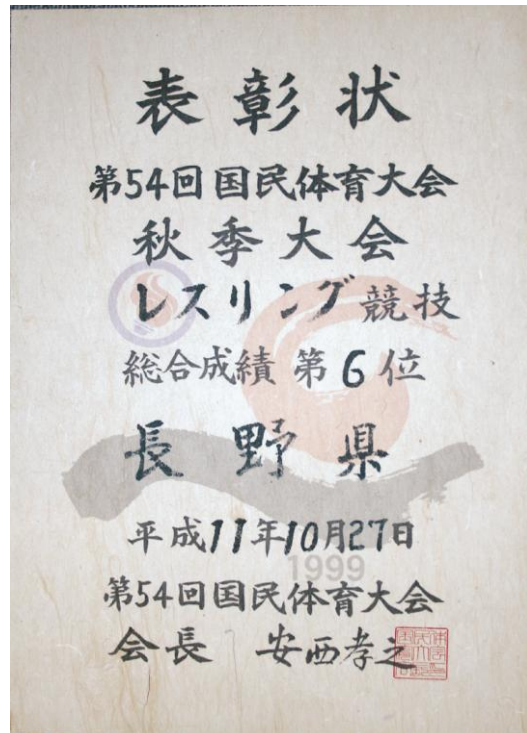 表彰状
第54回国民体育大会
秋季大会
レスリング競技
総合成績 第6位
長野県
平成11年10月27日
1999
第54回国民体育大会
会長 安西孝之